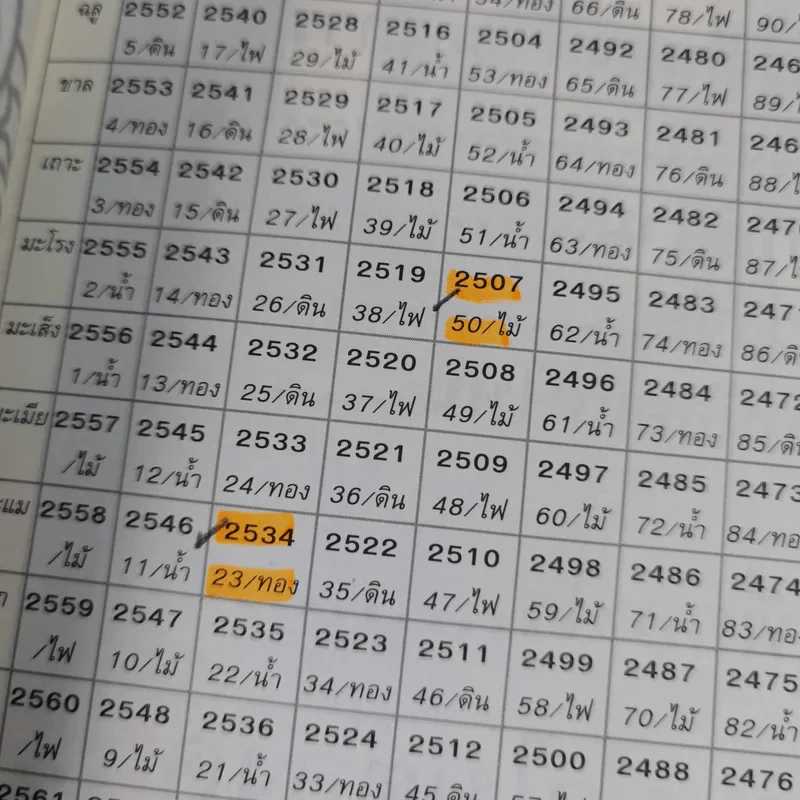 ฉลู 2552 2540 2528 2516 2504 2492 2480
5/ดิน 17/ไฟ 29/ไม้ 41/น้ำ 53/ทอง 65/ดิน 77/ไฟ
66/ดิน 78/ไฟ
ขาล 2553 2541 2529 2517 2505 2493 2481
4/ทอง 16/ดิน 28/ไฟ 40/ไม้ 52/น้ำ 64/ทอง 76/ดิน
เถาะ 2554 2542 2530 2518 2506 2494 2482
3/ทอง 15/ดิน 27/ไฟ 39/ไม้ 51/น้ำ 63/ทอง 75/ดิน
มะโรง 2555 2543 2531 2519 2507 2495 2483
2/น้ำ 14/ทอง 26/ดิน 38/ไฟ 50/ไม้ 62/น้ำ 74/ทอง
มะเส็ง 2556 2544 2532 2520 2508 2496 2484 2472
1/น้ำ 13/ทอง 25/ดิน 37/ไฟ 49/ไม้ 61/น้ำ 73/ทอง 85/ดิน
2557 2545 2533 2521 2509 2497 2485 2473
/ไม้ 12/น้ำ 24/ทอง 36/ดิน 48/ไฟ 60/ไม้ 72/น้ำ
2558 2546 2534 2522 2510 2498 2486 2474
/ไม้ 11/น้ำ 23/ทอง 35/ดิน 47/ไฟ 59/ไม้ 71/น้ำ
2559 2547 2535 2523 2511 2499 2487 2475
/ไฟ 10/ไม้ 22/น้ำ 34/ทอง 46/ดิน 58/ไฟ 70/ไม้ 82/น้ำ
2560 2548 2536 2524 2512 2500 2488 2476
/ไฟ 9/ไม้ 21/น้ำ 33/ทอง 45 ดิน
2561